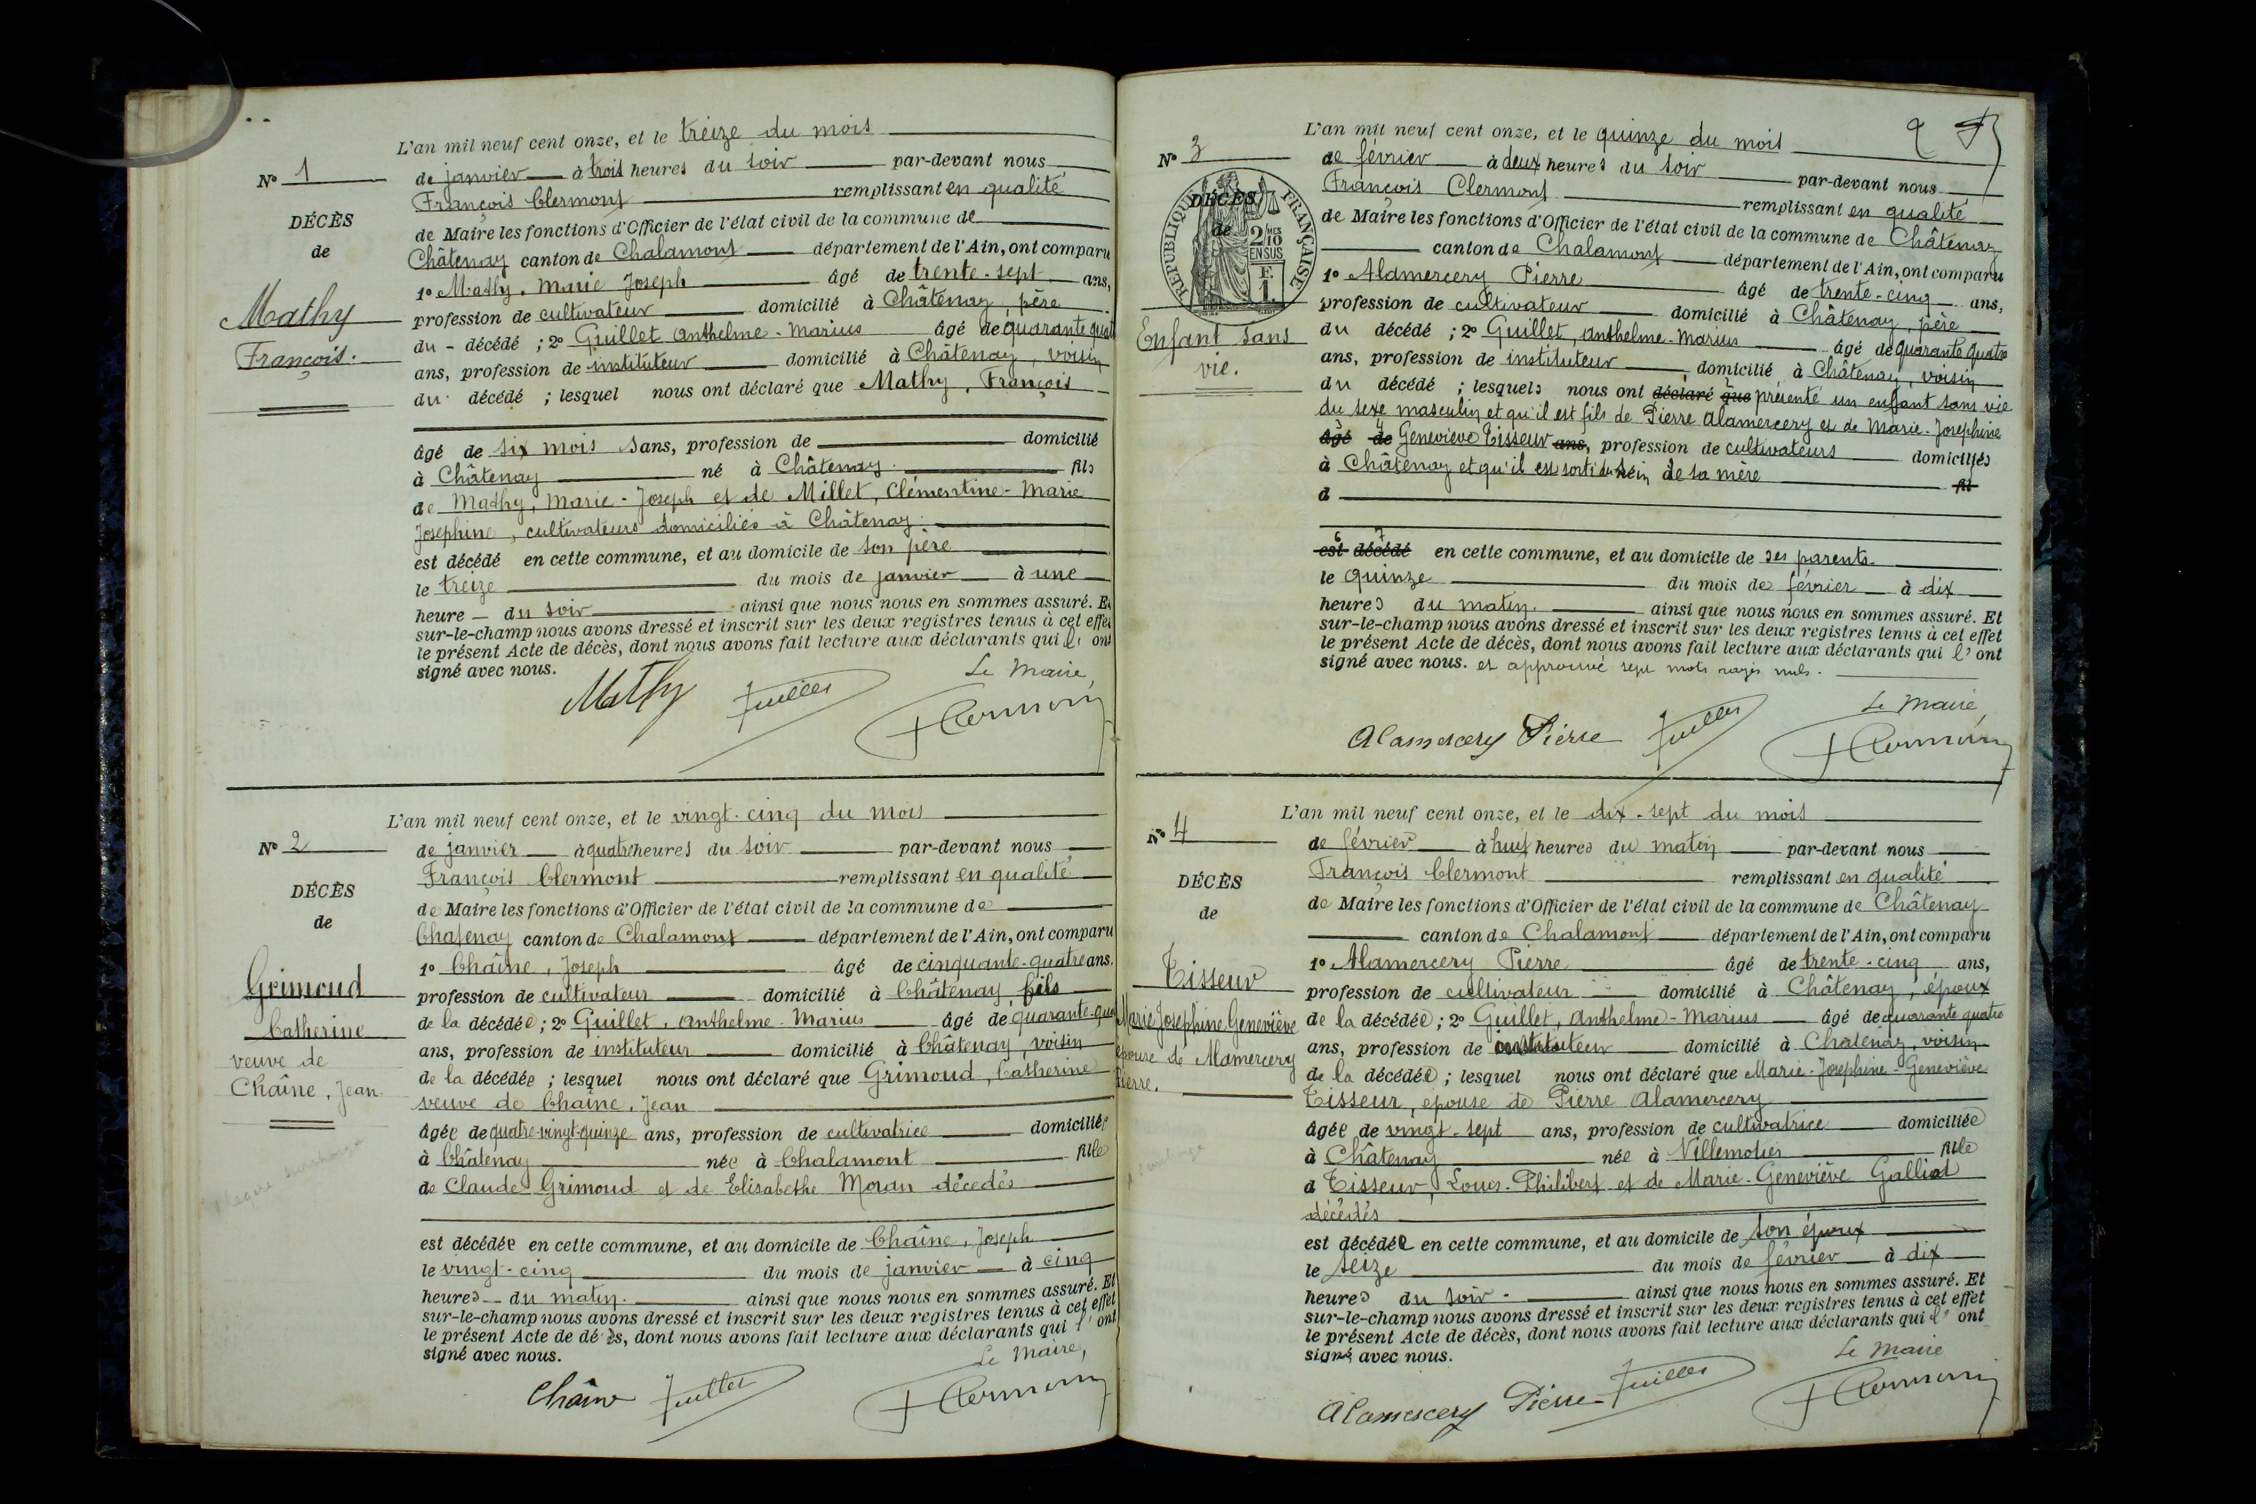 L'an mil neuf cent onze, et le treize du mois
N° 1
de janvier à trois heures du soir par-devant nous
François Clermont remplissant en qualité
DÉCÈS
de Maire les fonctions d'Officier de l'état civil de la commune de
de
Châtenay canton de Chalamont département de l'Ain, ont comparu
1° Mathy, Marie Joseph âgé de trente-sept ans,
Mathy
François.
profession de cultivateur domicilié à Châtenay, père
du décédé ; 2° Guillet Anthelme-Marius âgé de quarante quat
ans, profession de instituteur domicilié à Châtenay, voisin
du décédé ; lesquel nous ont déclaré que Mathy, François
âgé de six mois sans, profession de domicilié
à Châtenay né à Châtenay. fils
de Mathy, Marie-Joseph et de Millet, Clémentine-Marie
Josephine, cultivateurs domiciliés à Châtenay.
est décédé en cette commune, et au domicile de son père
le treize du mois de janvier à une
heure du soir ainsi que nous nous en sommes assuré. Et
sur-le-champ nous avons dressé et inscrit sur les deux registres tenus à cet effet
le présent Acte de décès, dont nous avons fait lecture aux déclarants qui l' ont
signé avec nous.
Le Maire,
Mathy Guillet FClermont
L'an mil neuf cent onze, et le vingt-cinq du mois
N° 2
de janvier à quatre heures du soir par-devant nous
François Clermont remplissant en qualité
DÉCÈS
de Maire les fonctions d'Officier de l'état civil de la commune de
de
Chatenay canton de Chalamont département de l'Ain, ont comparu
1° Chaîne, Joseph âgé de cinquante-quatre ans.
Grimoud
Catherine
veuve de
Chaîne, Jean
profession de cultivateur domicilié à Châtenay, fils
de la décédée ; 2° Guillet, Anthelme-Marius âgé de quarante-qua
ans, profession de instituteur domicilié à Châtenay, voisin
de la décédée ; lesquel nous ont déclaré que Grimoud, Catherine
veuve de Chaîne, Jean
âgée de quatre-vingt-quinze ans, profession de cultivatrice domiciliée
à Châtenay née à Chalamont fille
de Claude Grimoud et de Elisabethe Moran décedés
est décédée en cette commune, et au domicile de Chaîne, Joseph
le vingt-cinq du mois de janvier à cinq
heures du matin. ainsi que nous nous en sommes assuré. Et
sur-le-champ nous avons dressé et inscrit sur les deux registres tenus à cet effet
le présent Acte de décès, dont nous avons fait lecture aux déclarants qui l' ont
signé avec nous.
Le Maire,
Chaîne Guillet FClermont
2
L'an mil neuf cent onze, et le quinze du mois
N° 3
de février à deux heures du soir par-devant nous
François Clermont remplissant en qualité
RÉPUBLIQUE FRANÇAISE
2/10MES EN SUS
F. 1.
DÉCÈS
de
de Maire les fonctions d'Officier de l'état civil de la commune de Châtenay
canton de Chalamont département de l'Ain, ont comparu
1° Alamercery Pierre âgé de trente-cinq ans,
profession de cultivateur domicilié à Châtenay, père
Enfant sans
vie.
du décédé ; 2° Guillet, Anthelme-Marius âgé de quarante quatre
ans, profession de instituteur domicilié à Châtenay, voisin
du décédé ; lesquels nous ont déclaré que présenté un enfant sans vie
du sexe masculin et qu'il est fils de Pierre Alamercery et de Marie-Josephine
âgé de Geneviève Tisseur ans, profession de cultivateurs domiciliés
à Châtenay et qu'il est sorti du sein de sa mère fil
d
est décédé en cette commune, et au domicile de ses parents
le quinze du mois de février à dix
heures du matin. ainsi que nous nous en sommes assuré. Et
sur-le-champ nous avons dressé et inscrit sur les deux registres tenus à cet effet
le présent Acte de décès, dont nous avons fait lecture aux déclarants qui l' ont
signé avec nous. et approuvé sept mots rayés nuls.
Le Maire,
Alamercery Pierre Guillet FClermont
L'an mil neuf cent onze, et le dix-sept du mois
N° 4
de février à huit heures du matin par-devant nous
François Clermont remplissant en qualité
DÉCÈS
de
de Maire les fonctions d'Officier de l'état civil de la commune de Châtenay
canton de Chalamont département de l'Ain, ont comparu
1° Alamercery Pierre âgé de trente-cinq ans,
Tisseur
Marie Josephine Geneviève
épouse de Alamercery
Pierre.
profession de cultivateur domicilié à Châtenay, époux
de la décédée ; 2° Guillet, Anthelme-Marius âgé de quarante quatre
ans, profession de instituteur domicilié à Chatenay, voisin
de la décédée ; lesquel nous ont déclaré que Marie-Josephine-Geneviève
Tisseur, épouse de Pierre Alamercery
âgée de vingt-sept ans, profession de cultivatrice domiciliée
à Châtenay née à Villemotier fille
d Tisseur, Louis-Philibert et de Marie-Geneviève Galliat
décédés
est décédée en cette commune, et au domicile de son époux
le seize du mois de février à dix
heures du soir. ainsi que nous nous en sommes assuré. Et
sur-le-champ nous avons dressé et inscrit sur les deux registres tenus à cet effet
le présent Acte de décès, dont nous avons fait lecture aux déclarants qui l' ont
signé avec nous.
Le Maire
Alamercery Pierre Guillet FClermont